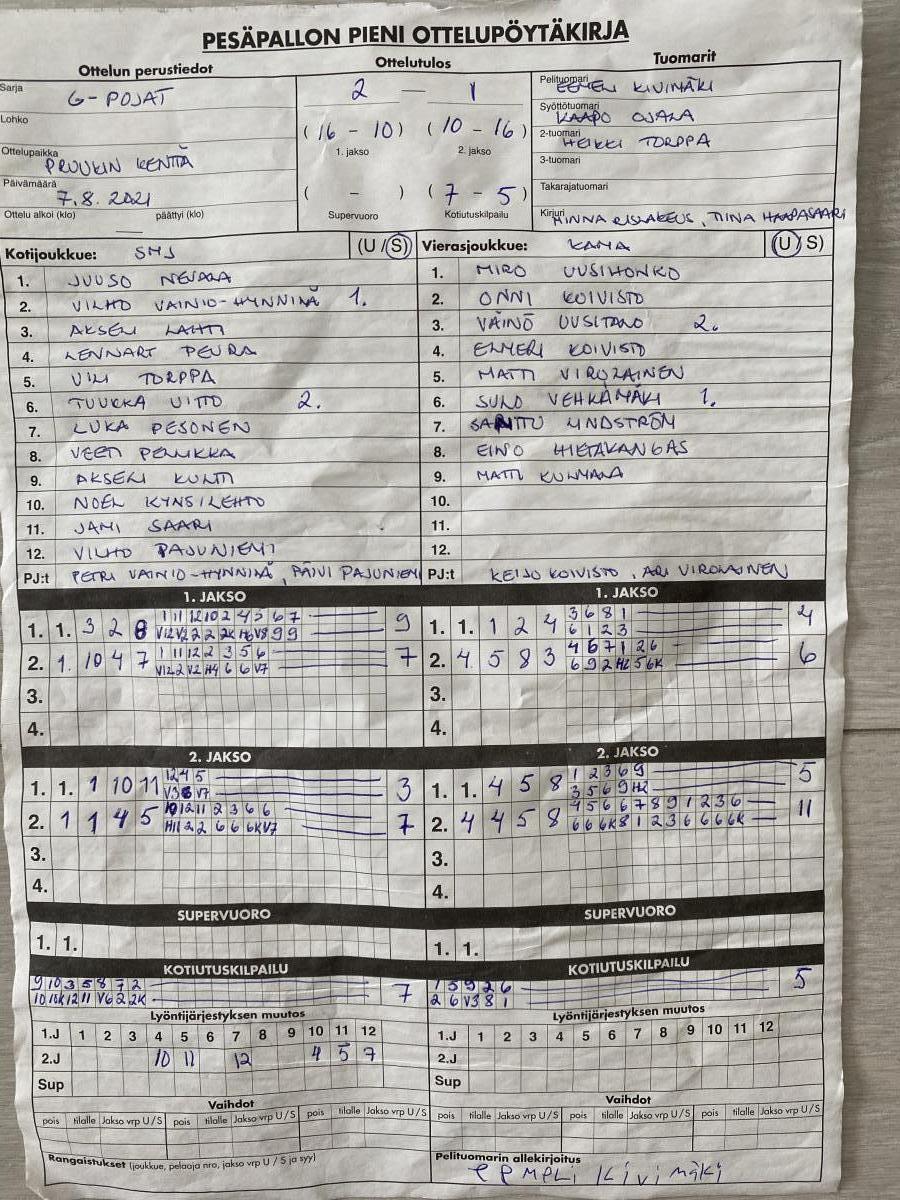 PESÄPALLON PIENI OTTELUPÖYTÄKIRJA
Ottelun perustiedot Ottelutulos Tuomarit
Sarja G-POJAT
2 — 1
Pelituomari EEMELI KIVIMÄKI
Lohko
(16 - 10) (10 - 16)
Syöttötuomari KAAPO OJALA
1. jakso 2. jakso
2-tuomari HEIKKI TORPPA
Ottelupaikka PRUUKIN KENTTÄ
3-tuomari
Päivämäärä 7.8.2021
( - ) (7 - 5)
Takarajatuomari
Ottelu alkoi (klo) päättyi (klo)
Supervuoro Kotiutuskilpailu
Kirjuri MINNA RISLAKEUS, TIINA HAAPASAARI
Kotijoukkue: SMJ (U / S) Vierasjoukkue: KAMA (U / S)
1. JUUSO NEVALA 1. MIRO UUSIHONKO
2. VILHO VAINIO-HYNNILÄ 1. 2. ONNI KOIVISTO
3. AKSELI LAHTI 3. VÄINÖ UUSITALO 2.
4. LENNART PEURA 4. ELMERI KOIVISTO
5. VILI TORPPA 5. MATTI VIROLAINEN
6. TUUKKA UITTO 2. 6. SULO VEHKAMÄKI 1.
7. LUKA PESONEN 7. LINDSTRÖM
8. VEETI PELLIKKA 8. EINO HIETAKANGAS
9. AKSELI KUNTI 9. MATTI KULMALA
10. NOEL KYNSILEHTO 10.
11. JAMI SAARI 11.
12. VILHO PAJUNIEMI 12.
PJ:t PETRI VAINIO-HYNNILÄ, PÄIVI PAJUNIEMI PJ:t KEIJO KOIVISTO, ARI VIROLAINEN
1. JAKSO 1. JAKSO
1 11 12 10 2 4 5 6 7 3 6 8 1
1. 1. 3 2 8 9 1. 1. 1 2 4 4
V12 V2 2 2 2K H6 V8 9 9 6 1 2 3
1 11 12 2 3 5 6 4 6 7 1 2 6
2. 1. 10 4 7 7 2. 4 5 8 3 6
V12 2 V2 H4 6 6 V7 6 9 2 H2 5 6K
3. 3.
4. 4.
2. JAKSO 2. JAKSO
12 4 5 1 2 3 6 9
1. 1. 1 10 11 3 1. 1. 4 5 8 5
V7 3 5 6 9 H2
12 11 2 3 6 6 4 5 6 6 7 8 9 1 2 3 6
2. 1 1 4 5 7 2. 4 4 5 8 11
H11 2 2 6 6 6K V7 6 6 6K 8 1 2 3 6 6 6 6K
3. 3.
4. 4.
SUPERVUORO SUPERVUORO
1. 1. 1. 1.
KOTIUTUSKILPAILU KOTIUTUSKILPAILU
9 10 3 5 8 7 2 7 1 5 9 2 6 5
10 10K 12 11 V6 2 2K 2 6 V3 8 1
Lyöntijärjestyksen muutos Lyöntijärjestyksen muutos
1.J 1 2 3 4 5 6 7 8 9 10 11 12 1.J 1 2 3 4 5 6 7 8 9 10 11 12
2.J 10 11 12 4 5 7 2.J
Sup Sup
Vaihdot Vaihdot
pois tilalle Jakso vrp U / S pois tilalle Jakso vrp U / S pois tilalle Jakso vrp U / S pois tilalle Jakso vrp U / S pois tilalle Jakso vrp U / S pois tilalle Jakso vrp U / S
Rangaistukset (joukkue, pelaaja nro, jakso vrp U / S ja syy) Pelituomarin allekirjoitus
Eemeli Kivimäki